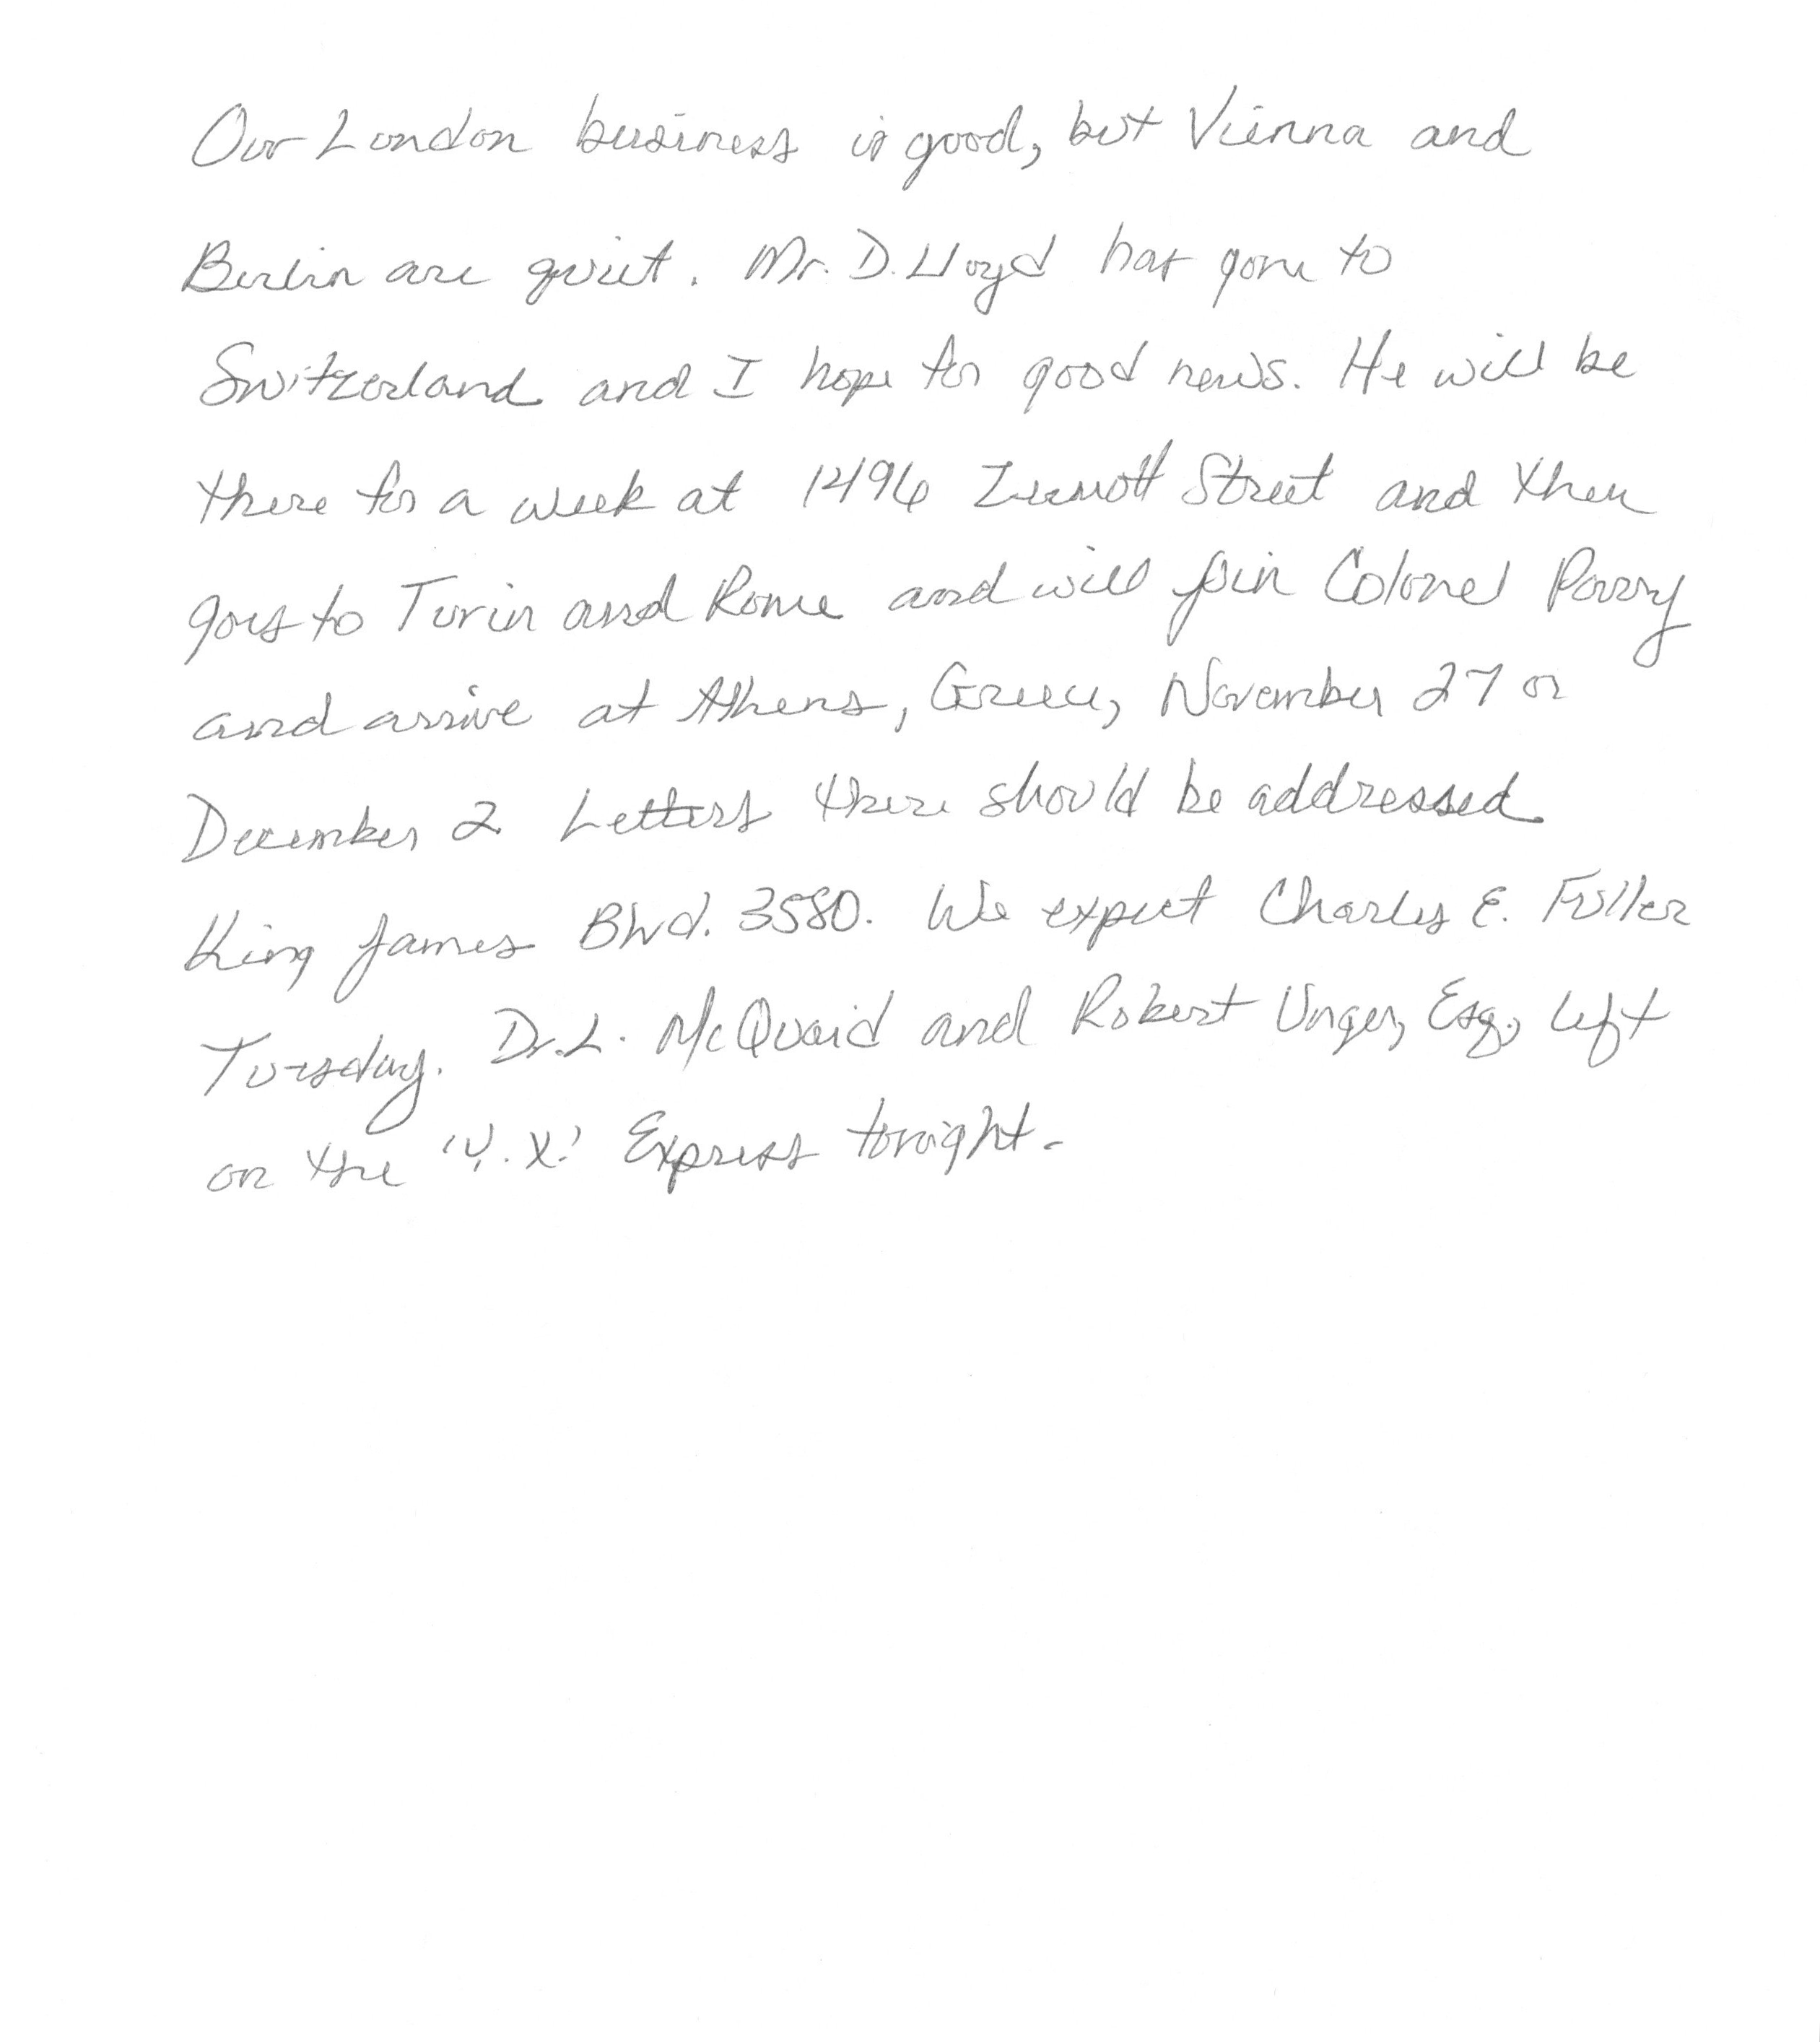 Our London business is good, but Vienna and
Berlin are quiet. Mr. D. Lloyd has gone to
Switzerland and I hope for good news. He will be
there for a week at 1496 Zermott Street and then
goes to Turin and Rome and will join Colonel Parry
and arrive at Athens, Greece, November 27 or
December 2 Letters there should be addressed
King James Blvd. 3580. We expect Charles E. Fuller
Tuesday. Dr. L. McQuaid and Robert Unger, Esq., left
on the 'Y. X.' Express tonight.